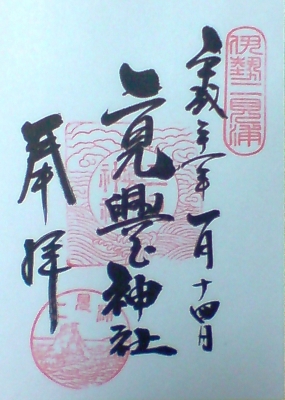 伊勢二見浦
平成 年 一月十四日
二見興玉神社
奉拝